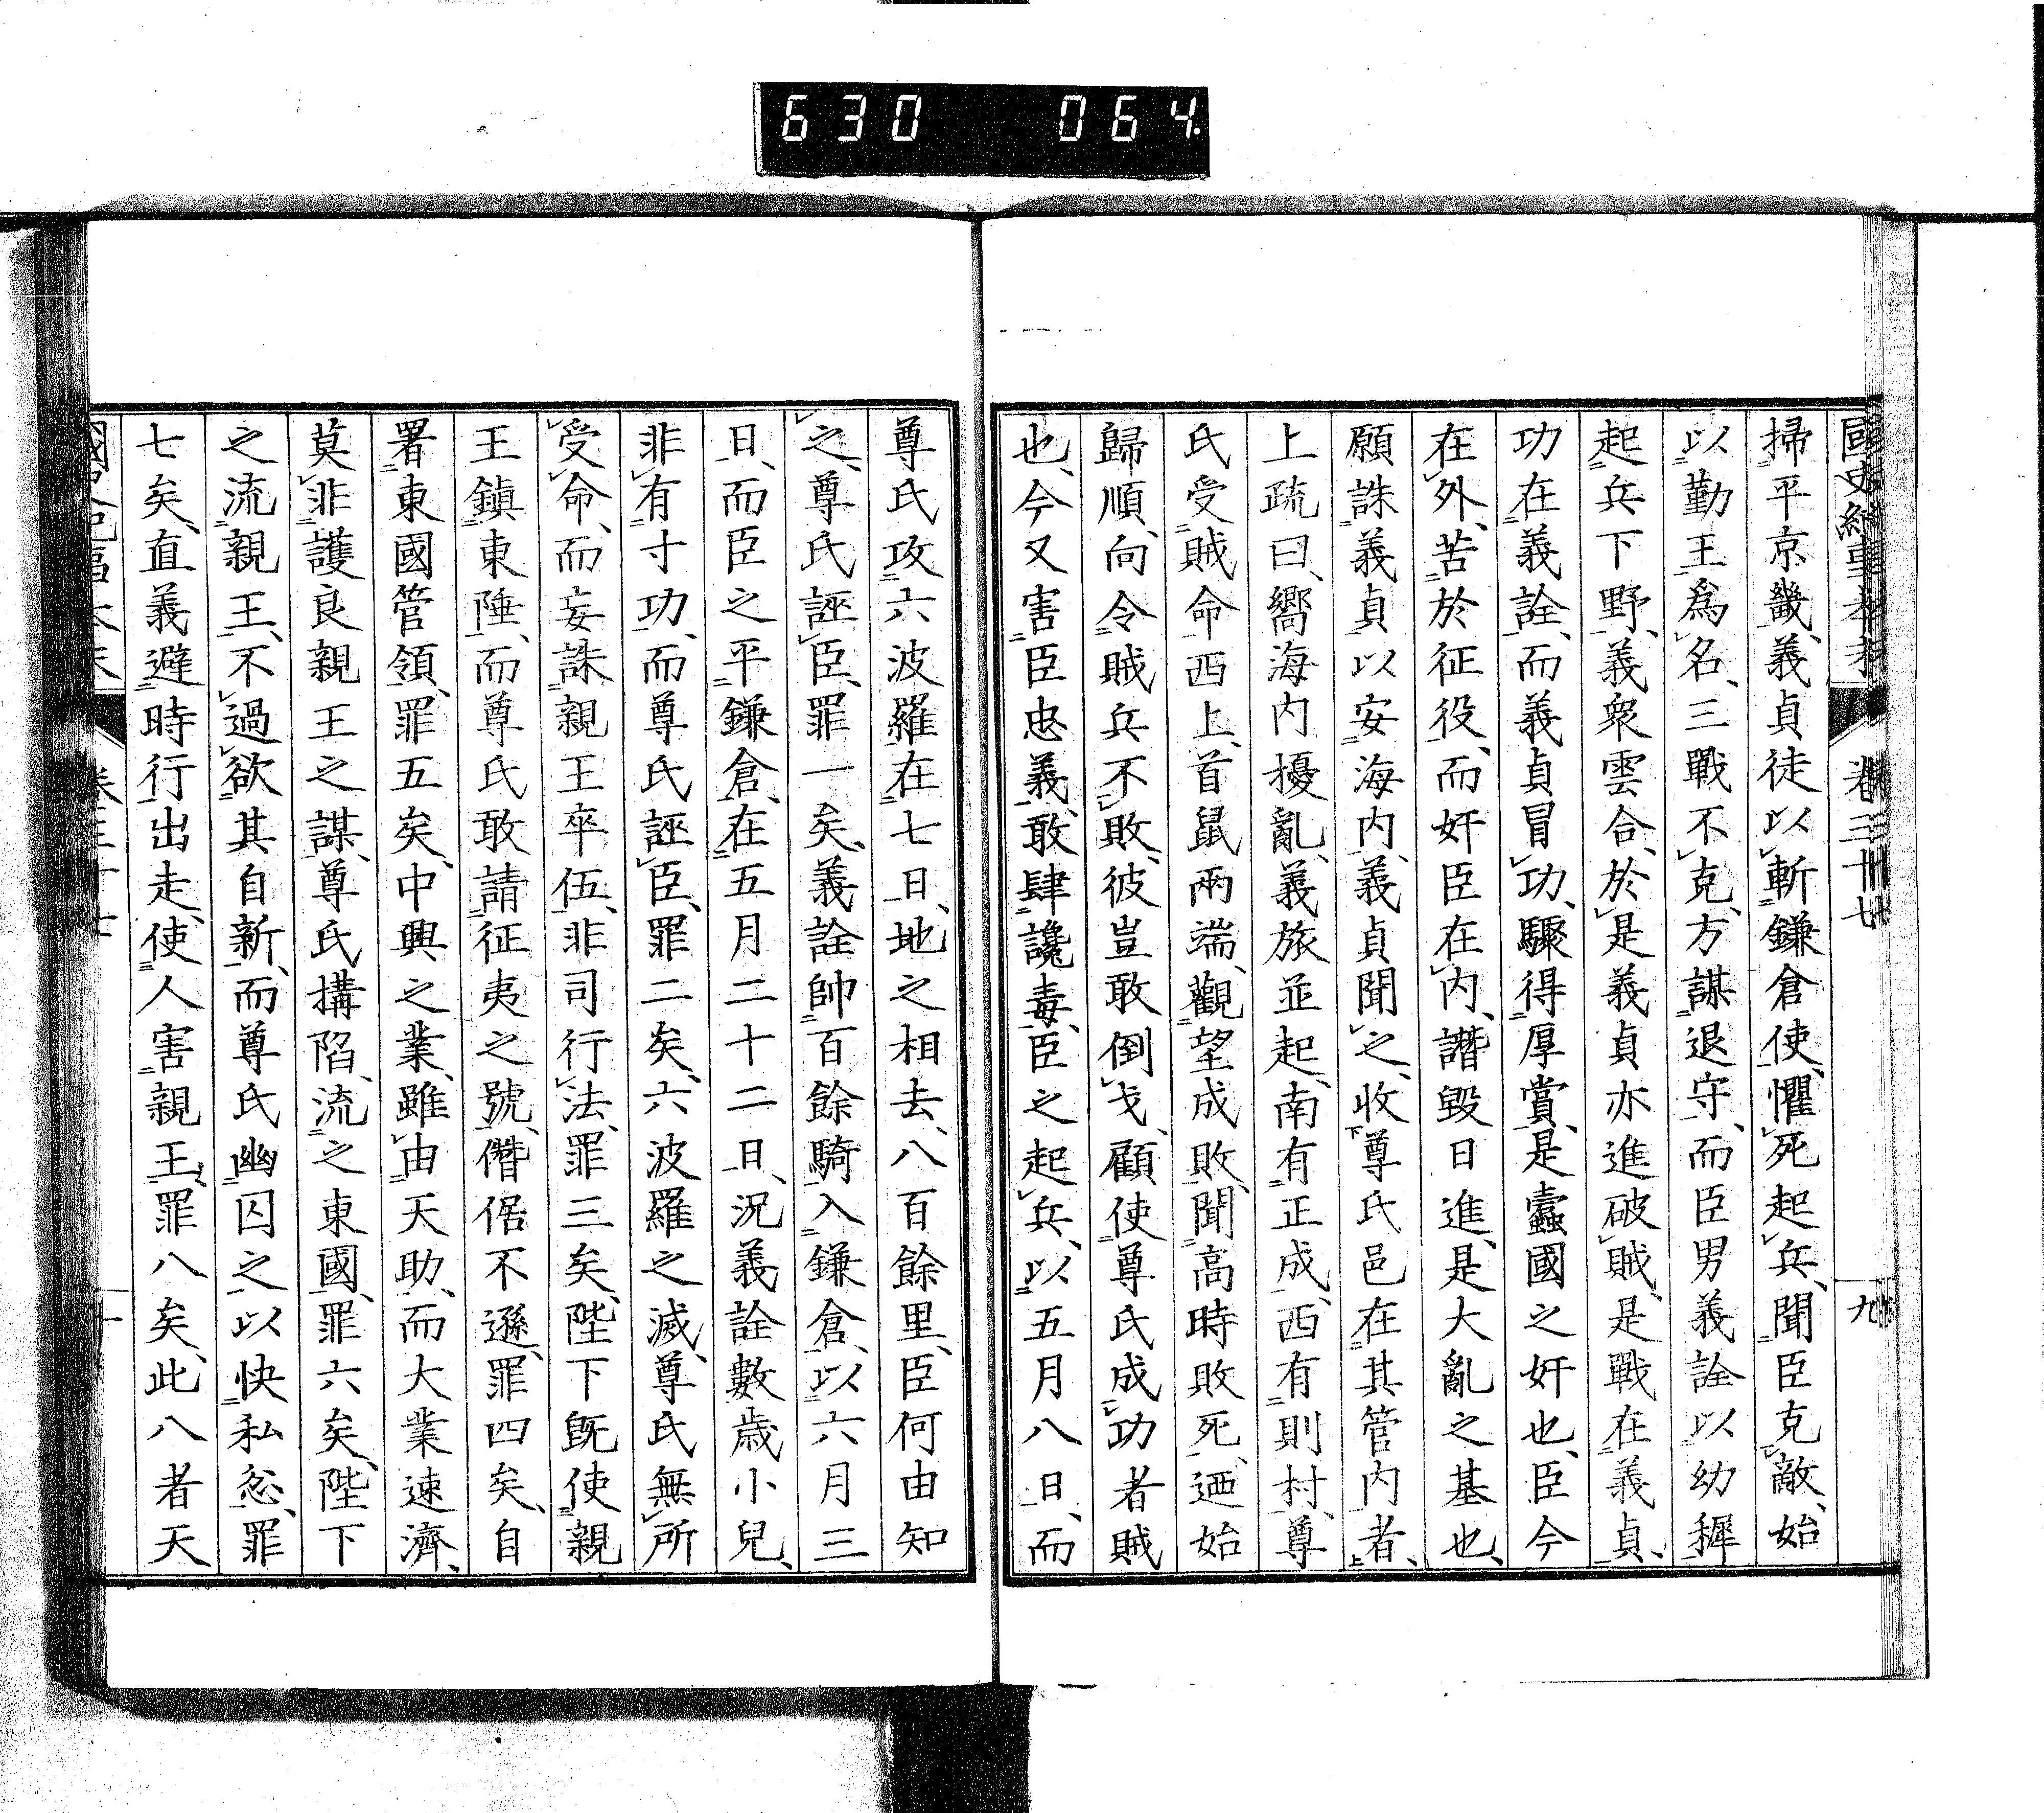 630 064
國史紀事本末 卷三十七 九
掃平京畿、義貞徒以斬鎌倉使、懼死起兵、聞臣克敵、始
以勤王爲名、三戰不克、方謀退守、而臣男義詮以幼穉
起兵下野、義衆雲合、於是義貞亦進破賊、是戰在義貞、
功在義詮、而義貞冒功、驟得厚賞、是蠹國之奸也、臣今
在外、苦於征役、而奸臣在內、譖毀日進、是大亂之基也、
願誅義貞以安海內、義貞聞之、收尊氏邑在其管內者、
上疏曰、嚮海內擾亂、義旅並起、南有正成、西有則村、尊
氏受賊命西上、首鼠兩端、觀望成敗、聞高時敗死、迺始
歸順、向令賊兵不敗、彼豈敢倒戈、顧使尊氏成功者賊
也、今又害臣忠義、敢肆讒毒、臣之起兵、以五月八日、而
尊氏攻六波羅在七日、地之相去、八百餘里、臣何由知
之、尊氏誣臣、罪一矣、義詮帥百餘騎入鎌倉、以六月三
日、而臣之平鎌倉、在五月二十二日、況義詮數歲小兒、
非有寸功、而尊氏誣臣、罪二矣、六波羅之滅、尊氏無所
受命、而妄誅親王卒伍、非司行法、罪三矣、陛下既使親
王鎮東陲、而尊氏敢請征夷之號、僭倨不遜、罪四矣、自
署東國管領、罪五矣、中興之業、雖由天助、而大業速濟、
莫非護良親王之謀、尊氏搆陷、流之東國、罪六矣、陛下
之流親王、不過欲其自新、而尊氏幽囚之、以快私忿、罪
七矣、直義避時行出走、使人害親王、罪八矣、此八者天